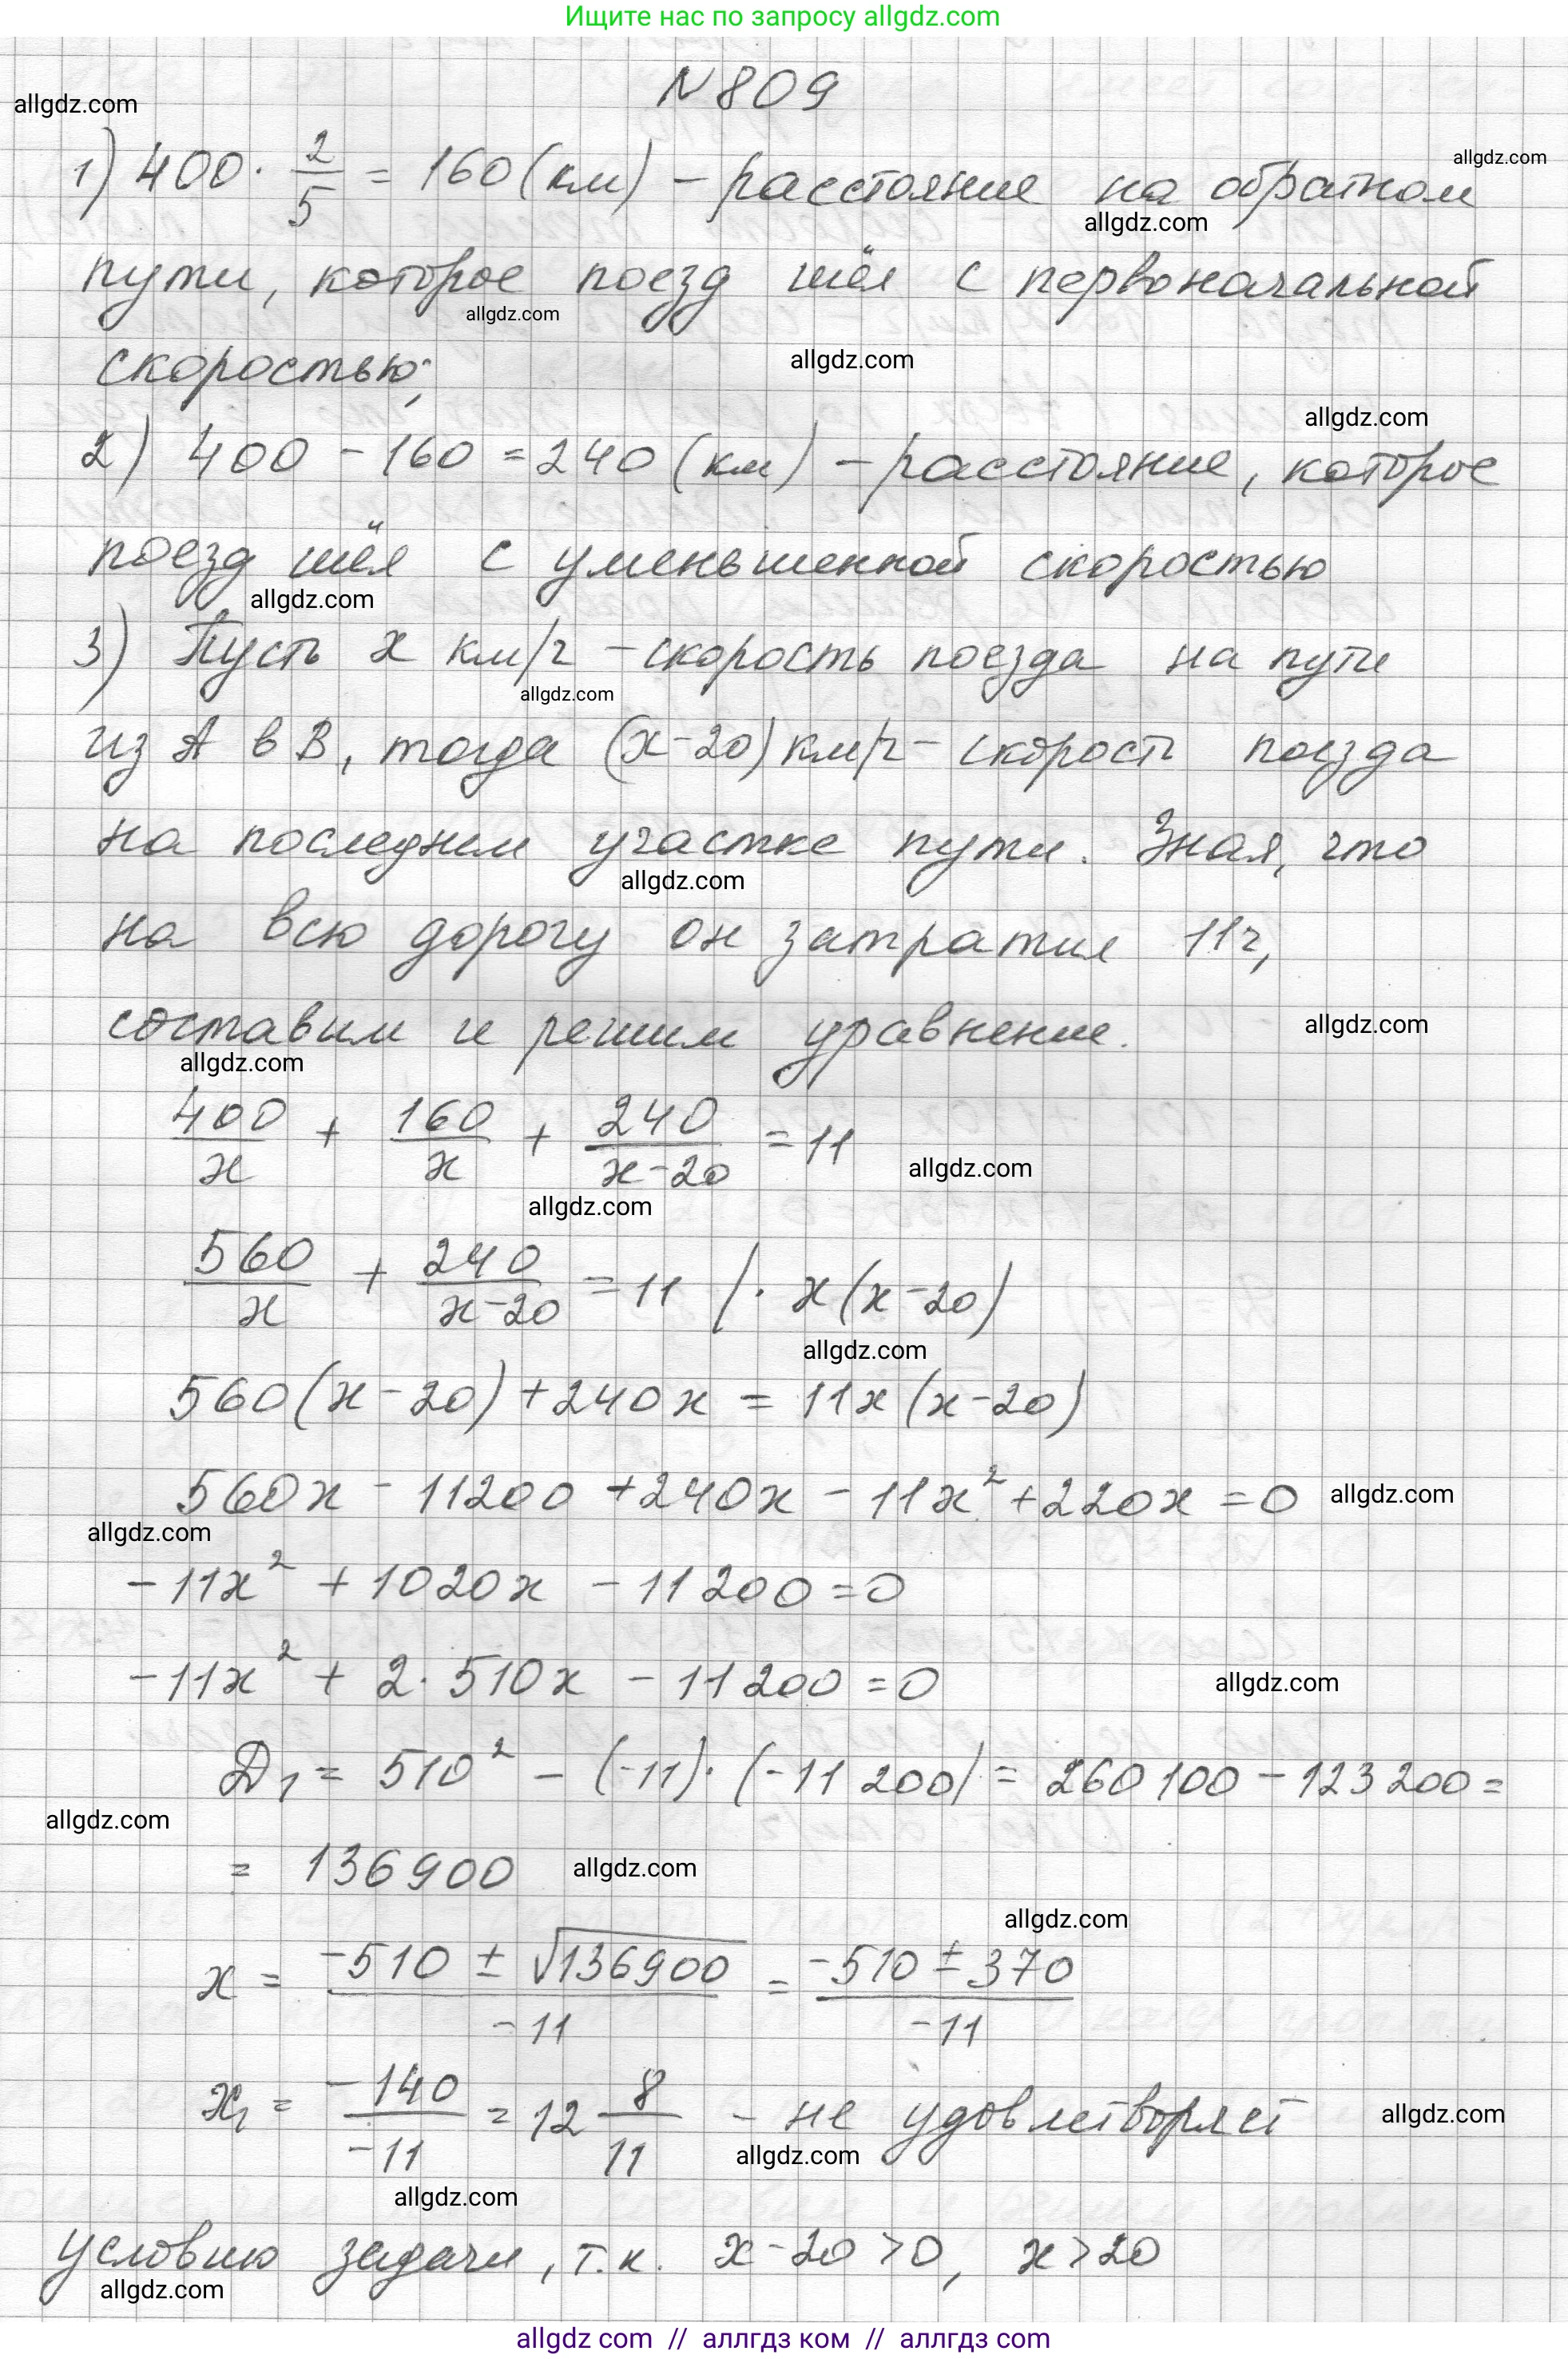 Ищите нас по запросу allgdz.com
N 809
allgdz.com
1) 400 · 2/5 = 160 (км) – расстояние на обратном
allgdz.com
allgdz.com
пути, которое поезд шёл с первоначальной
allgdz.com
скоростью;
allgdz.com
allgdz.com
2) 400 - 160 = 240 (км) – расстояние, которое
поезд шёл с уменьшенной скоростью
allgdz.com
3) Пусть x км/ч – скорость поезда на пути
allgdz.com
из A в B, тогда (x-20) км/ч – скорость поезда
на последнем участке пути. Зная, что
allgdz.com
на всю дорогу он затратил 11ч,
составим и решим уравнение.
allgdz.com
allgdz.com
400/x + 160/x + 240/(x-20) = 11
allgdz.com
allgdz.com
560/x + 240/(x-20) = 11 | · x(x-20)
allgdz.com
560(x-20)+240x = 11x(x-20)
560x - 11200 + 240x - 11x² + 220x = 0
allgdz.com
allgdz.com
-11x² + 1020x - 11200 = 0
-11x² + 2·510x - 11200 = 0
allgdz.com
D₁ = 510² - (-11)·(-11 200) = 260 100 - 123 200 =
allgdz.com
= 136900
allgdz.com
allgdz.com
x = (-510 ± √136900)/-11 = (-510 ± 370)/-11
x₁ = -140/-11 = 12 8/11 – не удовлетворяет
allgdz.com
allgdz.com
allgdz.com
условию задачи, т.к. x-20>0, x>20
allgdz.com
allgdz com // аллгдз ком // аллгдз com